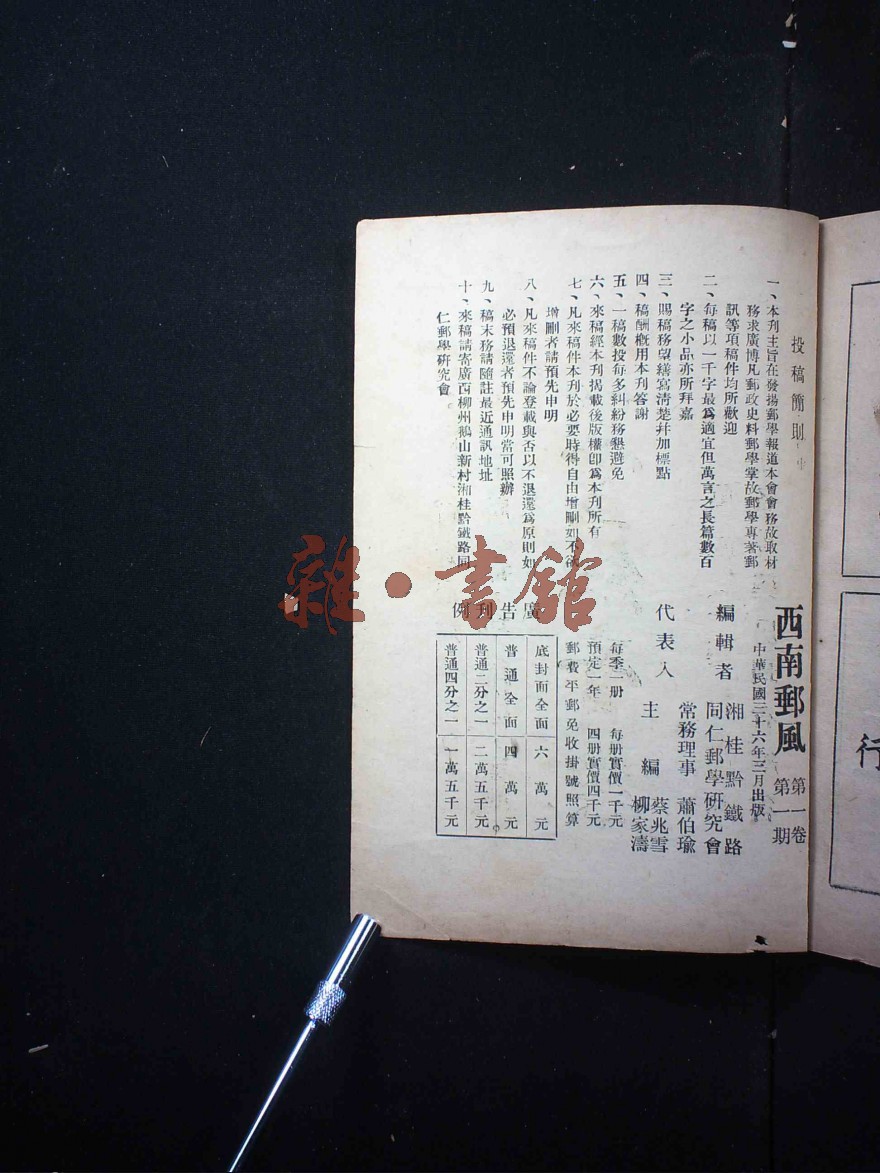 投稿簡則
一、本刊主旨在發揚郵學報道本會會務故取材
務求廣博凡郵政史料郵學掌故郵學專著郵
訊等項稿件均所歡迎
二、每稿以一千字最爲適宜但萬言之長篇數百
字之小品亦所拜嘉
三、賜稿務望繕寫清楚幷加標點
四、稿酬槪用本刊答謝
五、一稿數投每多糾紛務懇避免
六、來稿經本刊揭載後版權卽爲本刊所有
七、凡來稿件本刊於必要時得自由增刪如不欲
增刪者請預先申明
八、凡來稿件不論登載與否以不退還爲原則如
必預退還者預先申明當可照辦
九、稿末務請隨註最近通訊地址
十、來稿請寄廣西柳州鵝山新村湘桂黔鐵路同
仁郵學研究會
西南郵風
第一卷
第一期
中華民國三十六年三月出版
編輯者
湘桂黔鐵路
同仁郵學研究會
代表人
常務理事 蕭伯瑜
主編
蔡兆雪
柳家濤
每季一册 每册實價一千元
預定一年 四册實價四千元
郵費平郵免收掛號照算
廣告刊例
底封面全面 六萬元
普通全面 四萬元
普通二分之一 二萬五千元
普通四分之一 一萬五千元
行
雜·書館